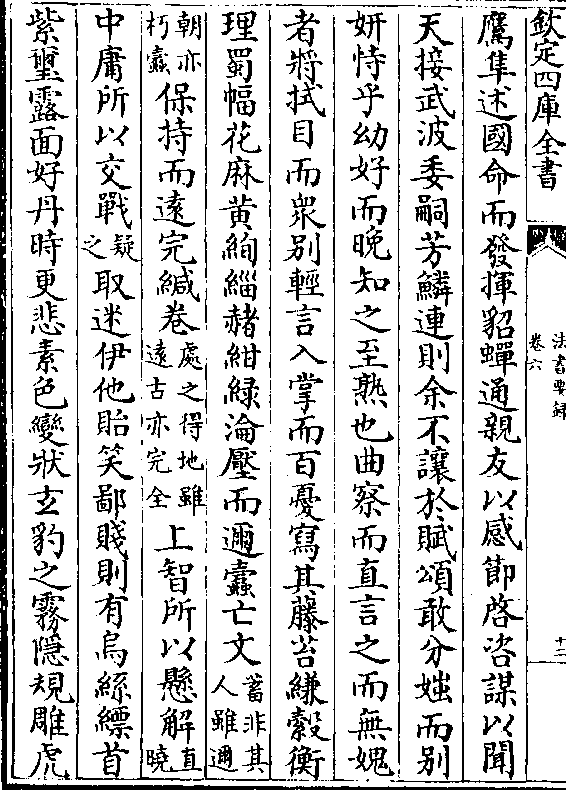 欽定四庫全書
法書要録
卷六
十二
鷹隼述國命而發揮貂蟬通親友以感節啓咨謀以聞
天接武波委嗣芳鱗連則余不讓於賦頌敢分媸而别
妍恃乎幼好而晚知之至熟也曲察而直言之而無媿
者將拭目而衆别輕言入掌而百憂寫其藤苔縑縠衡
理蜀幅花麻黄絢緇赭紺緑淪壓而邇蠹亡文蓄非其人雖邇
朝亦朽蠹保持而逺完緘卷處之得地雖逺古亦完全上智所以懸解直曉
中庸所以交戰疑之取迷伊他貽笑鄙賤則有烏絲縹首
紫璽露面好丹時更悲素色變狀玄豹之霧隠規雕虎